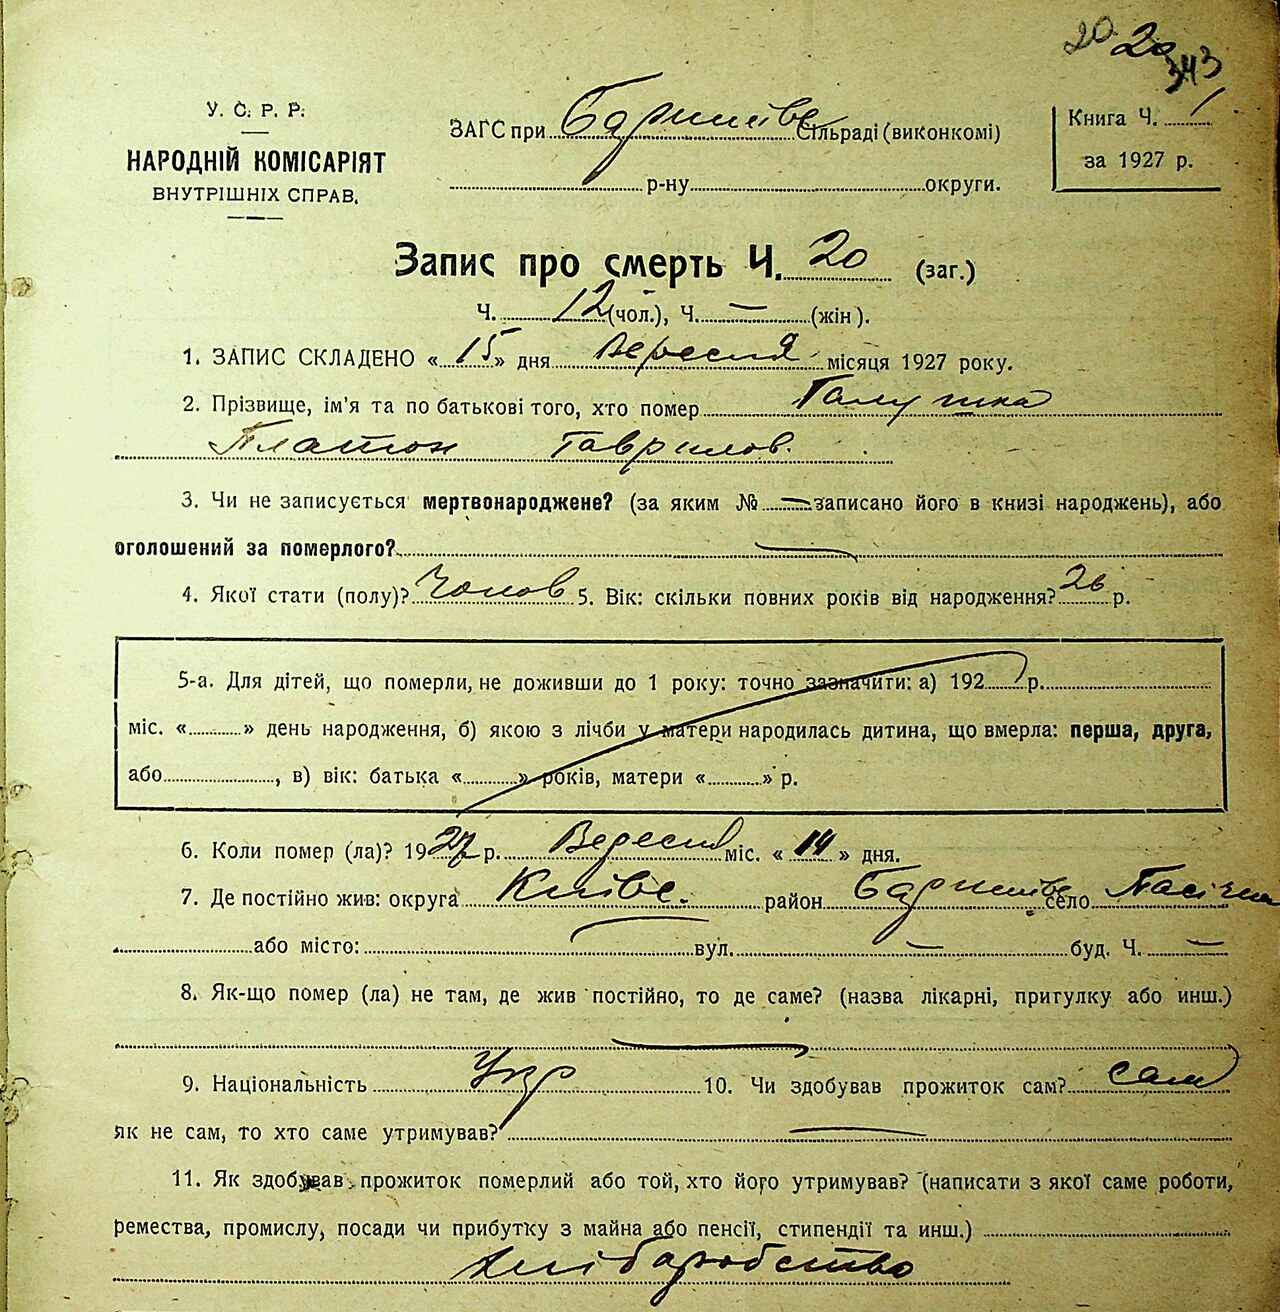 20 20
343
У. С. Р. Р.
НАРОДНІЙ КОМІСАРІЯТ
ВНУТРІШНІХ СПРАВ.
ЗАГС при Баришівс Сільраді (виконкомі)
р-ну округи.
Книга Ч. 1
за 1927 р.
Запис про смерть Ч. 20 (заг.)
Ч. 12 (чол.), Ч. — (жін).
1. ЗАПИС СКЛАДЕНО « 15 » дня Вересня місяця 1927 року.
2. Прізвище, ім'я та по батькові того, хто помер Галушка
Платон Гаврилов.
3. Чи не записується мертвонароджене? (за яким № — записано його в книзі народжень), або
оголошений за померлого? —
4. Якої стати (полу)? Чолов 5. Вік: скільки повних років від народження? 26 р.
5-а. Для дітей, що померли, не доживши до 1 року: точно зазначити: а) 192 р.
міс. « » день народження, б) якою з лічби у матери народилась дитина, що вмерла: перша, друга,
або , в) вік: батька « » років, матери « » р.
6. Коли помер (ла)? 1927 р. Вересня міс. « 14 » дня.
7. Де постійно жив: округа Київс. район Баришівс село Пасічна
або місто: — вул. — буд. Ч. —
8. Як-що помер (ла) не там, де жив постійно, то де саме? (назва лікарні, пригулку або инш.)
—
9. Національність Укр 10. Чи здобував прожиток сам? сам
як не сам, то хто саме утримував? —
11. Як здобував прожиток померлий або той, хто його утримував? (написати з якої саме роботи,
ремества, промислу, посади чи прибутку з майна або пенсії, стипендії та инш.)
Хліборобство